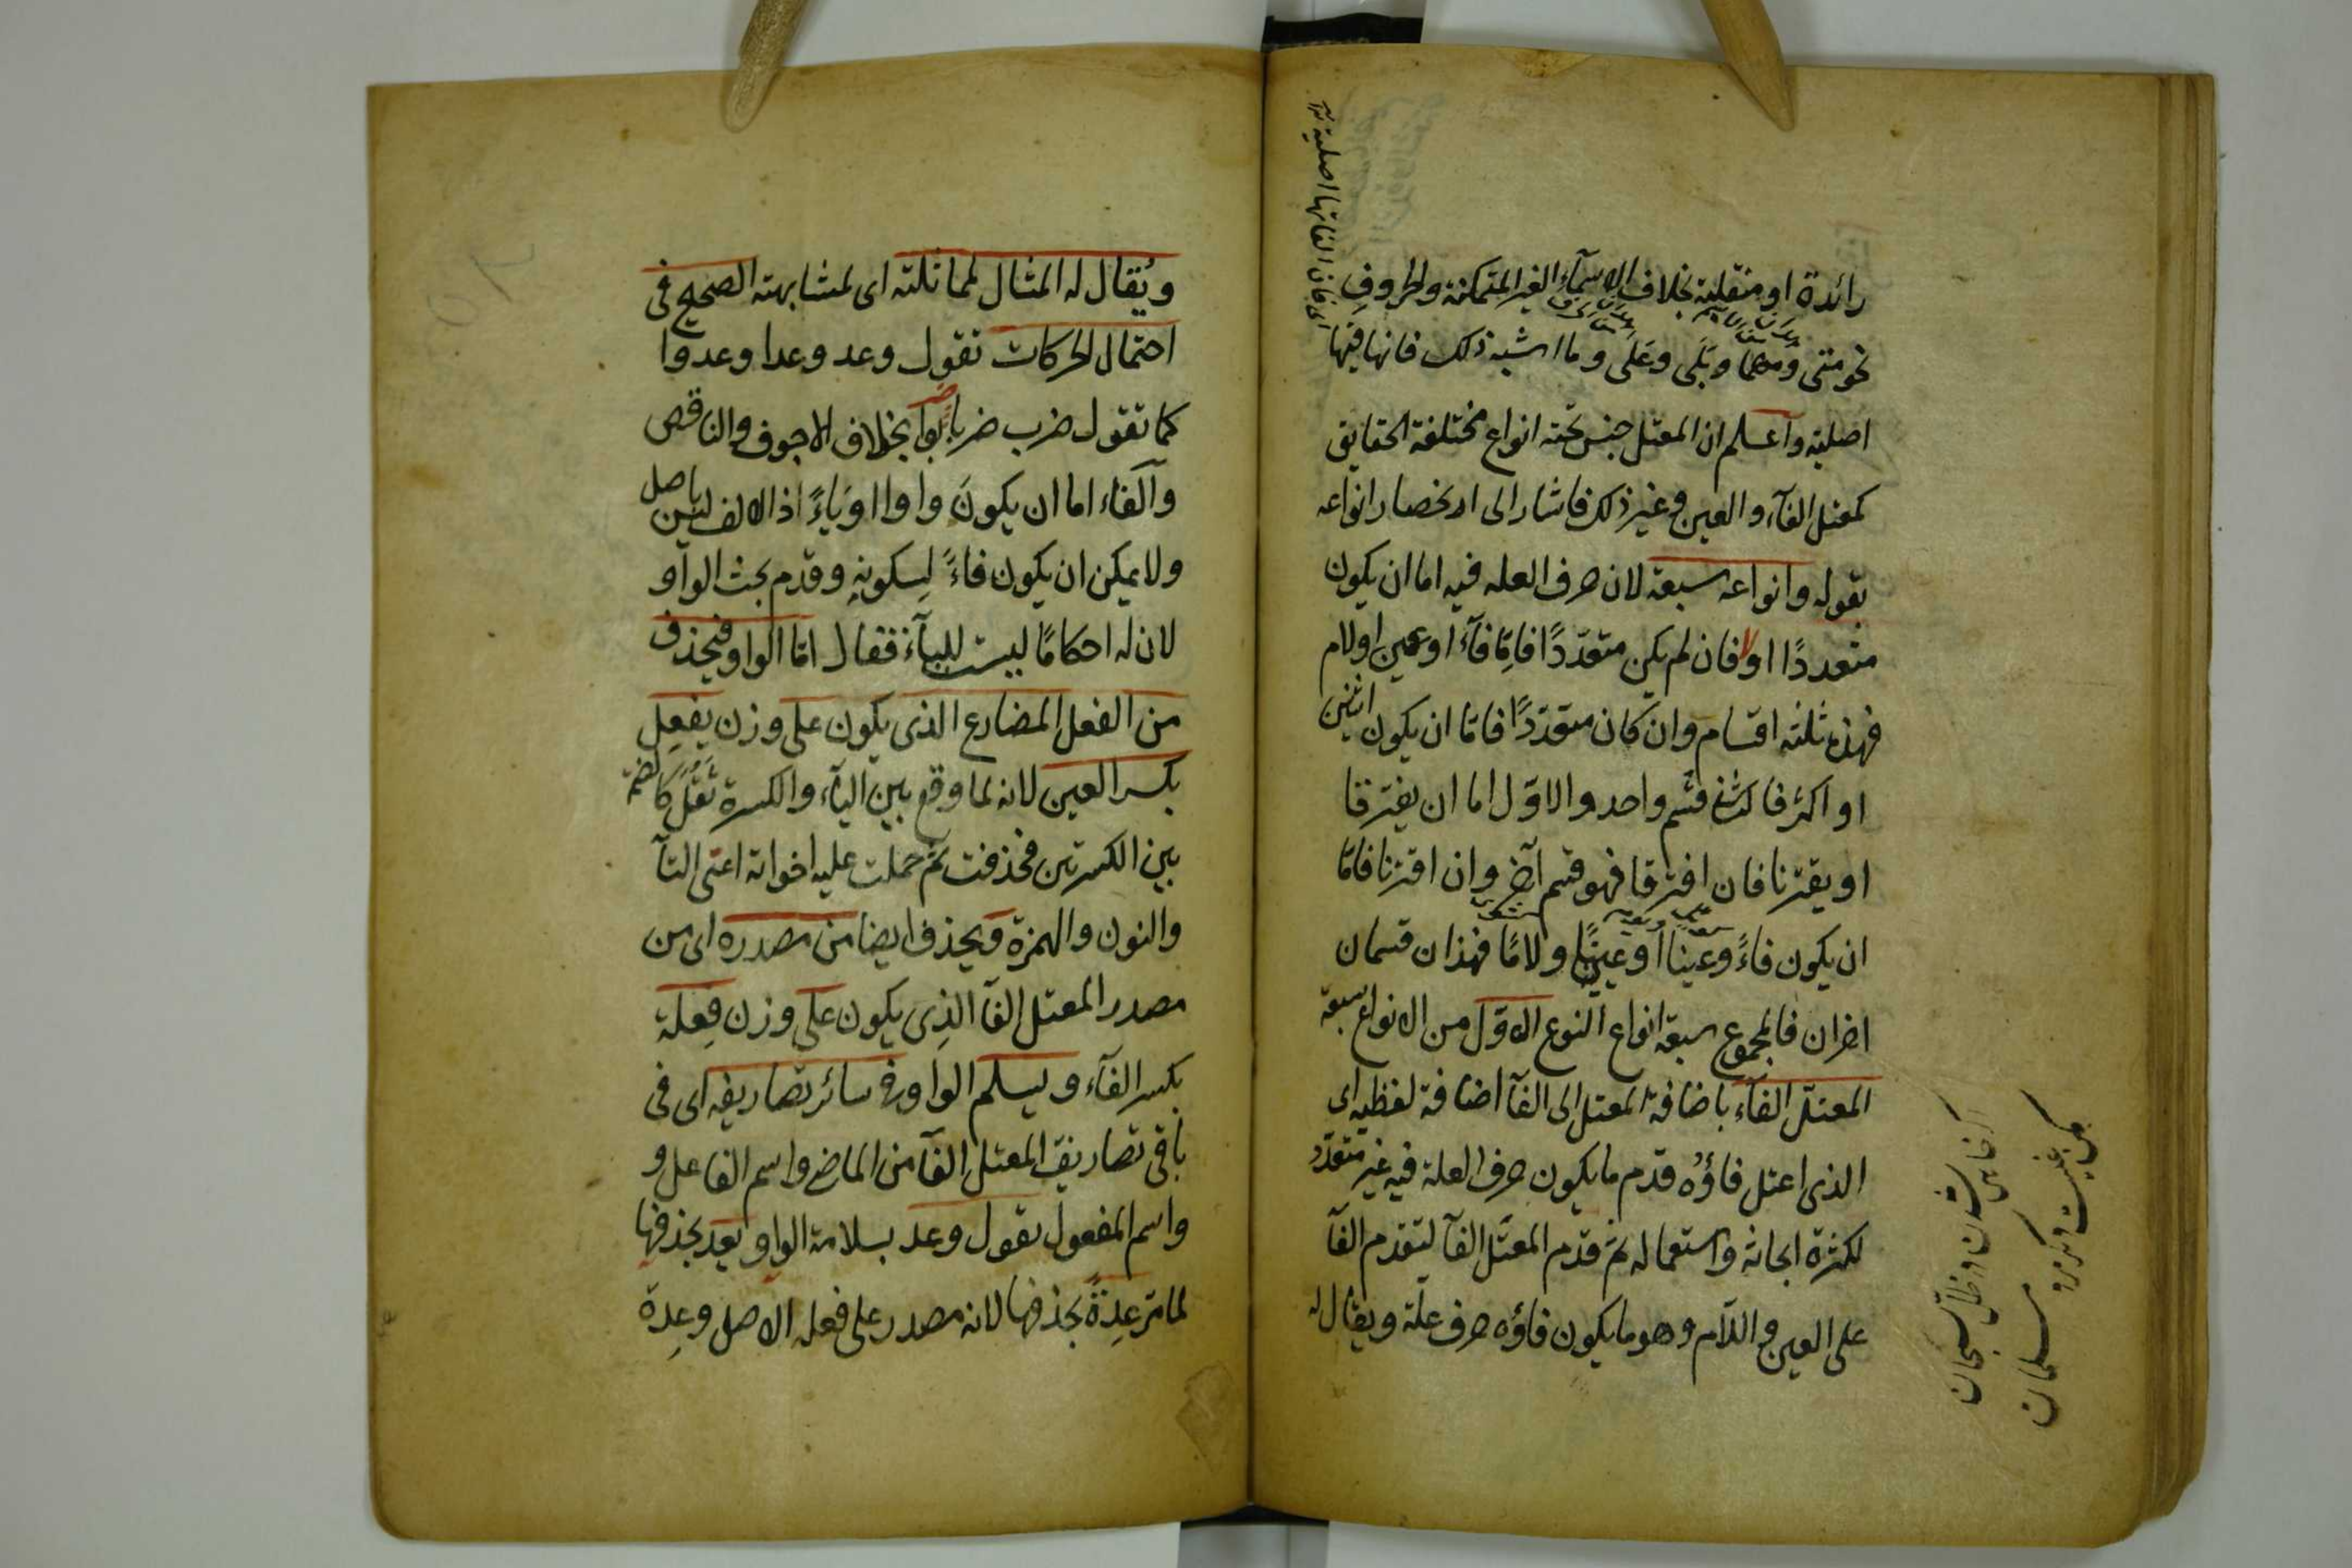 زائدة او منقلبة بخلاف الاسماء الغير المتمكنة والحروف
نحو متى ومهما وبلى وعلى وما اشبه ذلك فانها فيها
اصلية واعلم ان المعتل جنس تحته انواع مختلفة الحقايق
كمعتل الفآء والعين وغير ذلك فاشار الى انحصار انواعه
بقوله وانواعه سبعة لان حرف العله فيه اما ان يكون
متعددًا اولا فان لم يكن متعدّدًا فامّا فآء او عين او لام
فهذه ثلثه اقسام وان كان متعدّدًا فاما ان يكون اثنين
او اكثر فالثانى قسم واحد والاوّل اما ان يفترقا
او يقترنا فان افترقا فهو قسم آخر وان اقترنا فامّا
ان يكون فاءً وعينا او عينًا ولامًا فهذان قسمان
اخران فالمجموع سبعة انواع النوع الاوّل من الانواع سبعة
المعتلّ الفآء باضافة المعتل الى الفآ اضافة لفظيه اى
الذى اعتل فاؤُه قدّم ما يكون حرف العلة فيه غير متعدّد
لكثرة ابحاثه واستعماله ثم قدّم المعتّل الفآ لتقدم الفآ
على العين واللّام وهو ما يكون فاؤه حرف علّة ويقال له
اى فان الفاتها اصلية
ويُقال له المثال لمماثلته اى لمشابهته الصحيح فى
احتمال الحركات تقول وعد وعدا وعدوا
كما تقول ضرب ضربا ضربوا بخلاف الاجوف والناقص
وآلفاء اما ان يكونَ واوا او ياءً اذ الالف ليس باصل
ولا يمكن ان يكون فاءً لسكونهِ وقدم بحث الواو
لان له احكامًا ليست للياء فقال امّا الواو فيحذف
من الفعل المضارع الذى يكون على وزن يفعِل
بكسر العين لانه لما وقع بين اليآء والكسرة ثقل كالضمة
بين الكسرتين فحذفت ثم حملت عليه اخواته اعنى التآ
والنون والهمزة ويحذف ايضا من مصدره اى من
مصدر المعتل الفآ الذِى يكون على وزن فِعلة
بكسر الفآء ويسلم الواو فى سائر تصاريفه اى فى
باقى تصاريف المعتل الفآ من الماضى واسم الفاعل و
واسم المفعول تقول وعد بسلامة الواو يعد بحذفها
لما مرّ عِدةً بحذفها لانه مصدر على فعله الاصل وعِدة